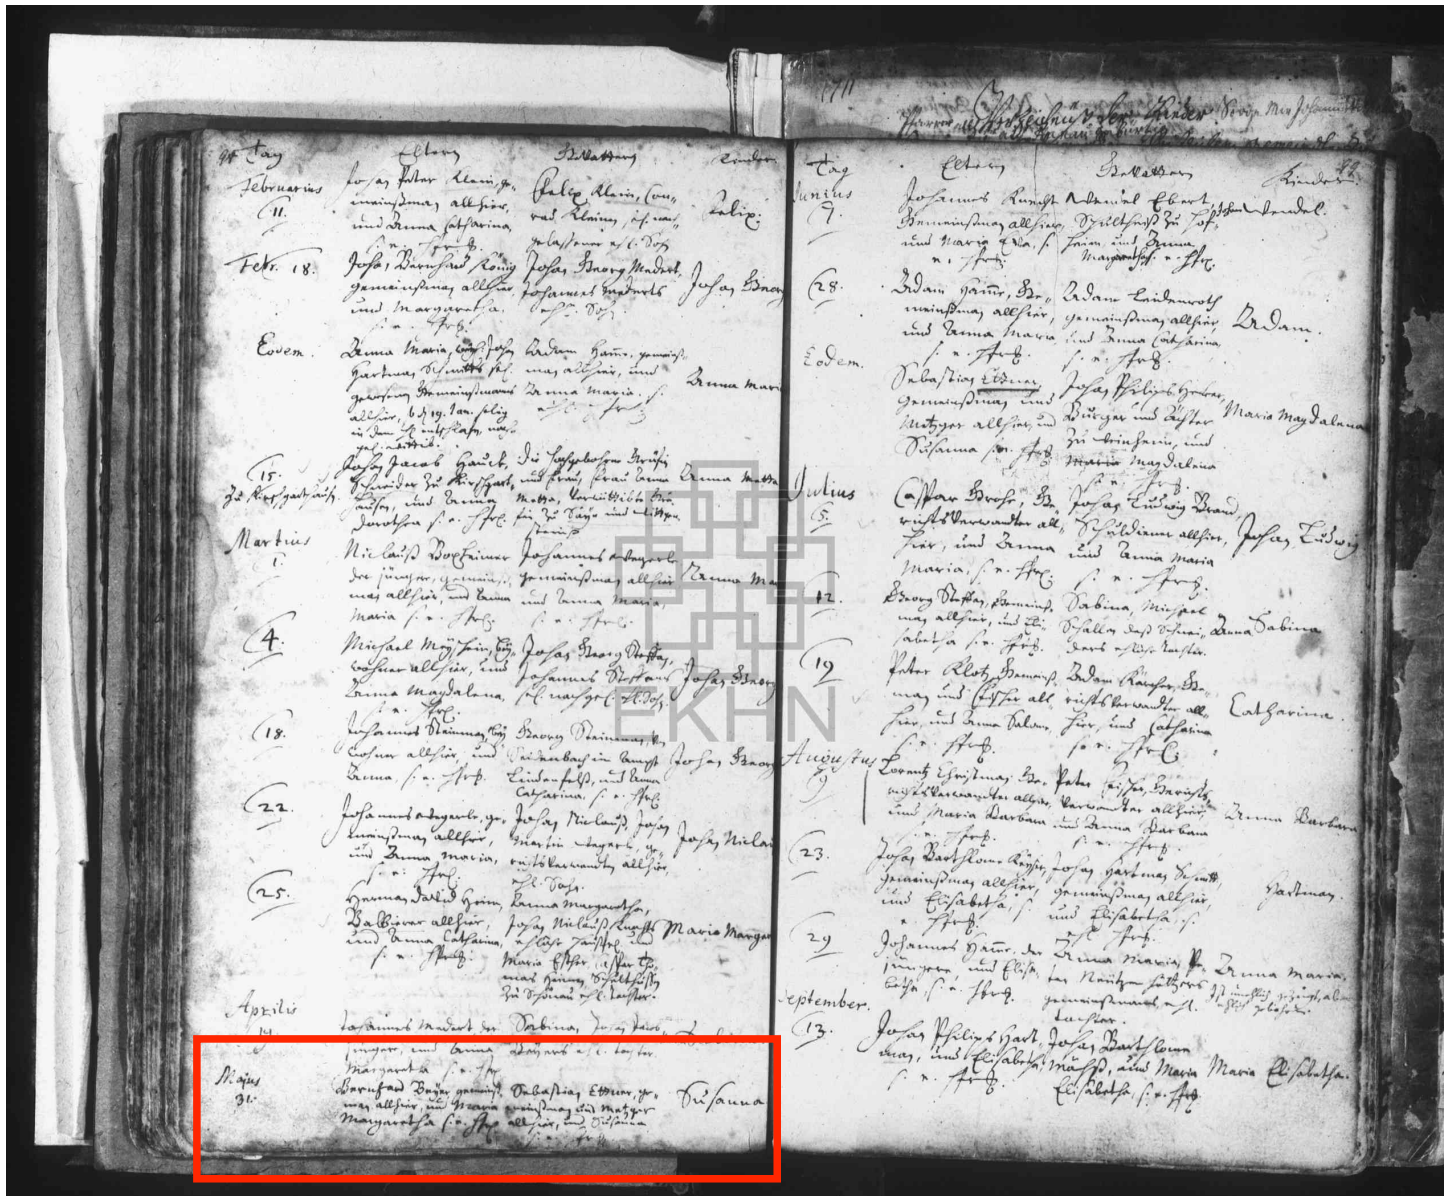 1711
94
Tag Eltern Gevattern Kinder
Februarius
11.
Johan Peter Klein, ge-
meinßman allhier,
und Anna Catharina,
s. e. Hfrß.
Felix Klein, Con-
rad Kleinen, sel. nach-
gelaßener ehl. Sohn
Felix.
Febr. 18.
Johan Bernhard König
gemeinßman allhier
und Margaretha,
s. e. Hfrß.
Johan Georg Medert,
Johannes Mederts
ehl. Sohn
Johan Georg
Eodem.
Anna Maria, Johan
Hartman Schmitts sel.
gewesenen Gemeinßmans
allhier, d. 19. Jan. selig
in dem H. entschlafen, nach-
gel. Wittib.
Adam Hame, gemeinß-
man allhier, und
Anna Maria, s.
ehl. Hfrß.
Anna Maria
15.
Johan Jacob Hauck,
Schneider zu Kirschgart-
hausen, und Anna
Dorothea s. e. Hfrß.
Anna Metta
Martius
1.
Niclauß Boxheimer
der jünger, gemeinß-
man allhier, und Anna
Maria s. e. Hfrß.
Johannes Wegerle
gemeinßman allhier
und Anna Maria,
s. e. Hfrß.
Anna Ma
4.
Michael
wohner allhier, und
Anna Magdalena,
s. e. Hfrß.
Johan Georg Steffan,
Johannes Steffans
sel. nachgel. ehl. Sohn
Johan Georg
18.
Johannes Steinman, Bey-
wohner allhier, und
Anna, s. e. Hfrß.
Georg Steinman, von
Seidenbach im Ampt
Lindenfelß, und Anna
Catharina, s. e. Hfrß.
Johan Georg
22.
Johannes Wegerle, ge-
meinßman allhier,
und Anna Maria,
s. e. Hfrß.
Johan Niclauß, Johan
Martin Wegerle, ge-
richtsverwandten allhier,
ehl. Sohn.
Johan Niclau
25.
Herman David Heim,
Balbierer allhier,
und Anna Catharina,
s. e. Hfrß.
Anna Margaretha,
Johan Niclauß Knechts
ehliche Haußfr. und
Maria Esther, Caspar Tho-
mas Heimen, Schultheißen
zu Schönau ehl. Tochter.
Maria Margar
Aprilis
19.
Johannes Medert der
jünger, und Anna
Margaretha s. e. Hfr.
Sabina, Johan
Beyers ehl. Tochter.
Majus
31.
Bernhard Beyer gemeinß-
man allhier, und Maria
Margaretha s. e. Hfrß.
Sebastian Ettner, ge-
meinßman und Metzger
allhier, und Susanna
s. e. Hfrß.
Susanna
Tag Eltern Gevattern Kinder.
Junius
7.
Johannes Knecht
Gemeinßman allhier,
und Maria Eva, s.
e. Hfrß.
Wendel Ebert,
Schultheiß zu Hof-
heim, und Anna
Margaretha s. e. Hfrß.
Wendel.
28.
Adam Hame, Ge-
meinßman allhier,
und Anna Maria
s. e. Hfrß.
Adam Leidenroth
gemeinßman allhier,
und Anna Catharina
s. e. Hfrß.
Adam.
Eodem.
Sebastian Ettner,
Gemeinßman und
Metzger allhier, und
Susanna s. e. Hfrß.
Johan Philips
Burger und
zu Weinheim, und
Maria Magdalena
s. e. Hfrß.
Maria Magdalena
Julius
5.
Caspar Grohe, Ge-
richtsverwandter all-
hier, und Anna
Maria, s. e. Hfrß.
Johan Ludwig Brand,
Schuldiener allhier,
und Anna Maria
s. e. Hfrß.
Johan Ludwig
12.
Georg Steffan, Gemeinß-
man allhier, und Eli-
sabetha s. e. Hfrß.
Sabina, Michael
Schallen deß Schnei-
ders ehliche Tochter.
Anna Sabina
19
Peter Klotz, Gemeinß-
man und Fischer all-
hier, und Anna Salome,
s. e. Hfrß.
Adam Kärcher, Ge-
richtsverwandter all-
hier, und Catharina
s. e. Hfrß.
Catharina.
Augustus
9
Lorentz Christman, Ge-
richtsverwandter allhier,
und Maria Barbara
s. e. Hfrß.
Peter Fischer, Gerichts-
verwandter allhier,
und Anna Barbara
s. e. Hfrß.
Anna Barbara
23.
Johan Barthlome
gemeinßman allhier,
und Elisabetha, s.
e. Hfrß.
Johan Hartman Schmitt,
gemeinßman allhier,
und Elisabetha, s.
ehl. Hfrß.
Hartman.
29
Johannes Hame, der
jüngere, und Elisa-
betha, s. e. Hfrß.
Anna Maria, Pe-
ter
gemeinßmans ehl.
Tochter.
Anna Maria,
September.
13.
Johan Philips Hart-
man, und Elisabetha,
s. e. Hfrß.
Johan Barthlome
und Maria
Elisabetha, s. e. Hfrß.
Maria Elisabetha.
EKHN